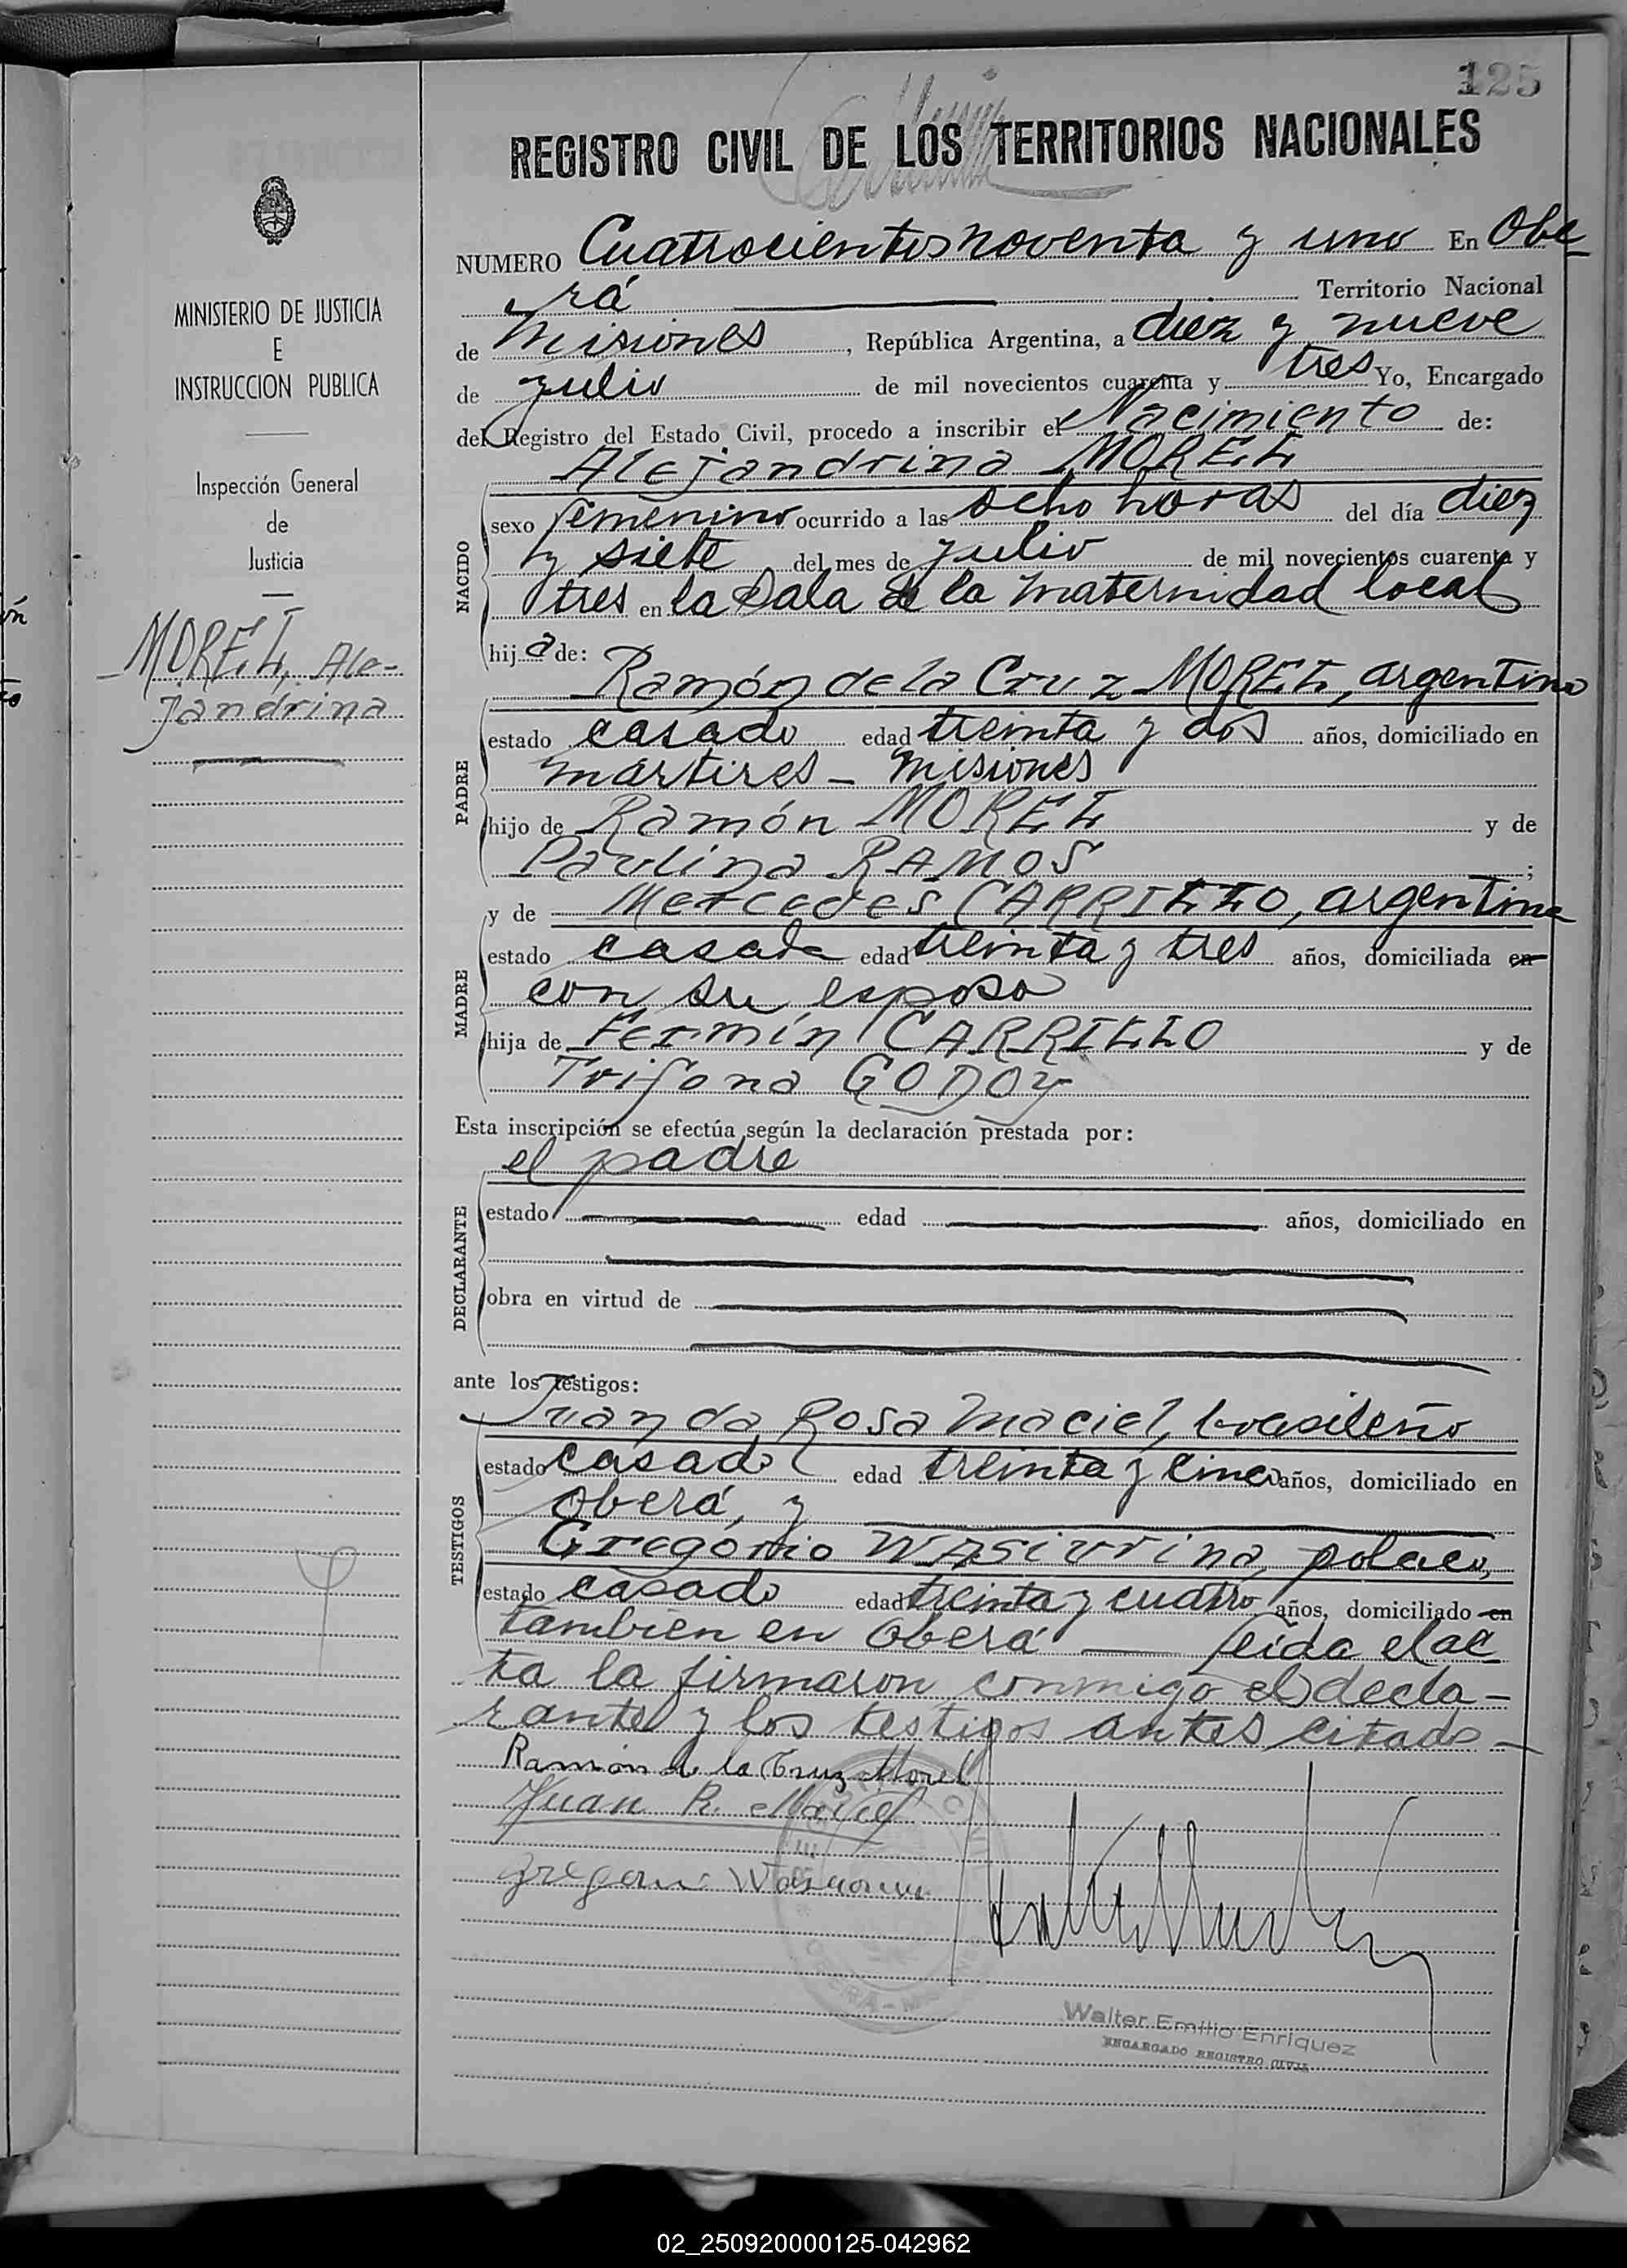 125
REGISTRO CIVIL DE LOS TERRITORIOS NACIONALES
MINISTERIO DE JUSTICIA
E
INSTRUCCION PUBLICA
Inspección General
de
Justicia
MOREL, Ale-
jandrina
NUMERO Cuatrocientos noventa y uno En Obe-
rá Territorio Nacional
de Misiones, República Argentina, a diez y nueve
de julio de mil novecientos cuarenta y tres Yo, Encargado
del Registro del Estado Civil, procedo a inscribir el Nacimiento de:
Alejandrina MOREL
NACIDO
sexo femenino ocurrido a las ocho horas del día diez
y siete del mes de julio de mil novecientos cuarenta y
tres en la Sala de la maternidad local
hija de:
Ramón de la Cruz MOREL, argentino
PADRE
estado casado edad treinta y dos años, domiciliado en
martires - misiones
hijo de Ramón MOREL y de
Paulina RAMOS;
y de Mercedes CARRILLO, argentina
MADRE
estado casada edad treinta y tres años, domiciliada en
con su esposo
hija de Fermín CARRILLO y de
Trifona GODOY
Esta inscripción se efectúa según la declaración prestada por:
el padre
DECLARANTE
estado edad años, domiciliado en
obra en virtud de
ante los testigos:
Juan da Rosa Maciel, brasileño
TESTIGOS
estado casado edad treinta y cinco años, domiciliado en
oberá, y
Gregorio Wasiurina, polaco,
estado casado edad treinta y cuatro años, domiciliado en
tambien en oberá leída el ac
ta la firmaron conmigo el decla-
rante y los testigos antes citado -
Ramón de la Cruz Morel
Juan R. Maciel
OBERA - MISIONES
Walter Emilio Enriquez
ENCARGADO REGISTRO CIVIL
02_250920000125-042962